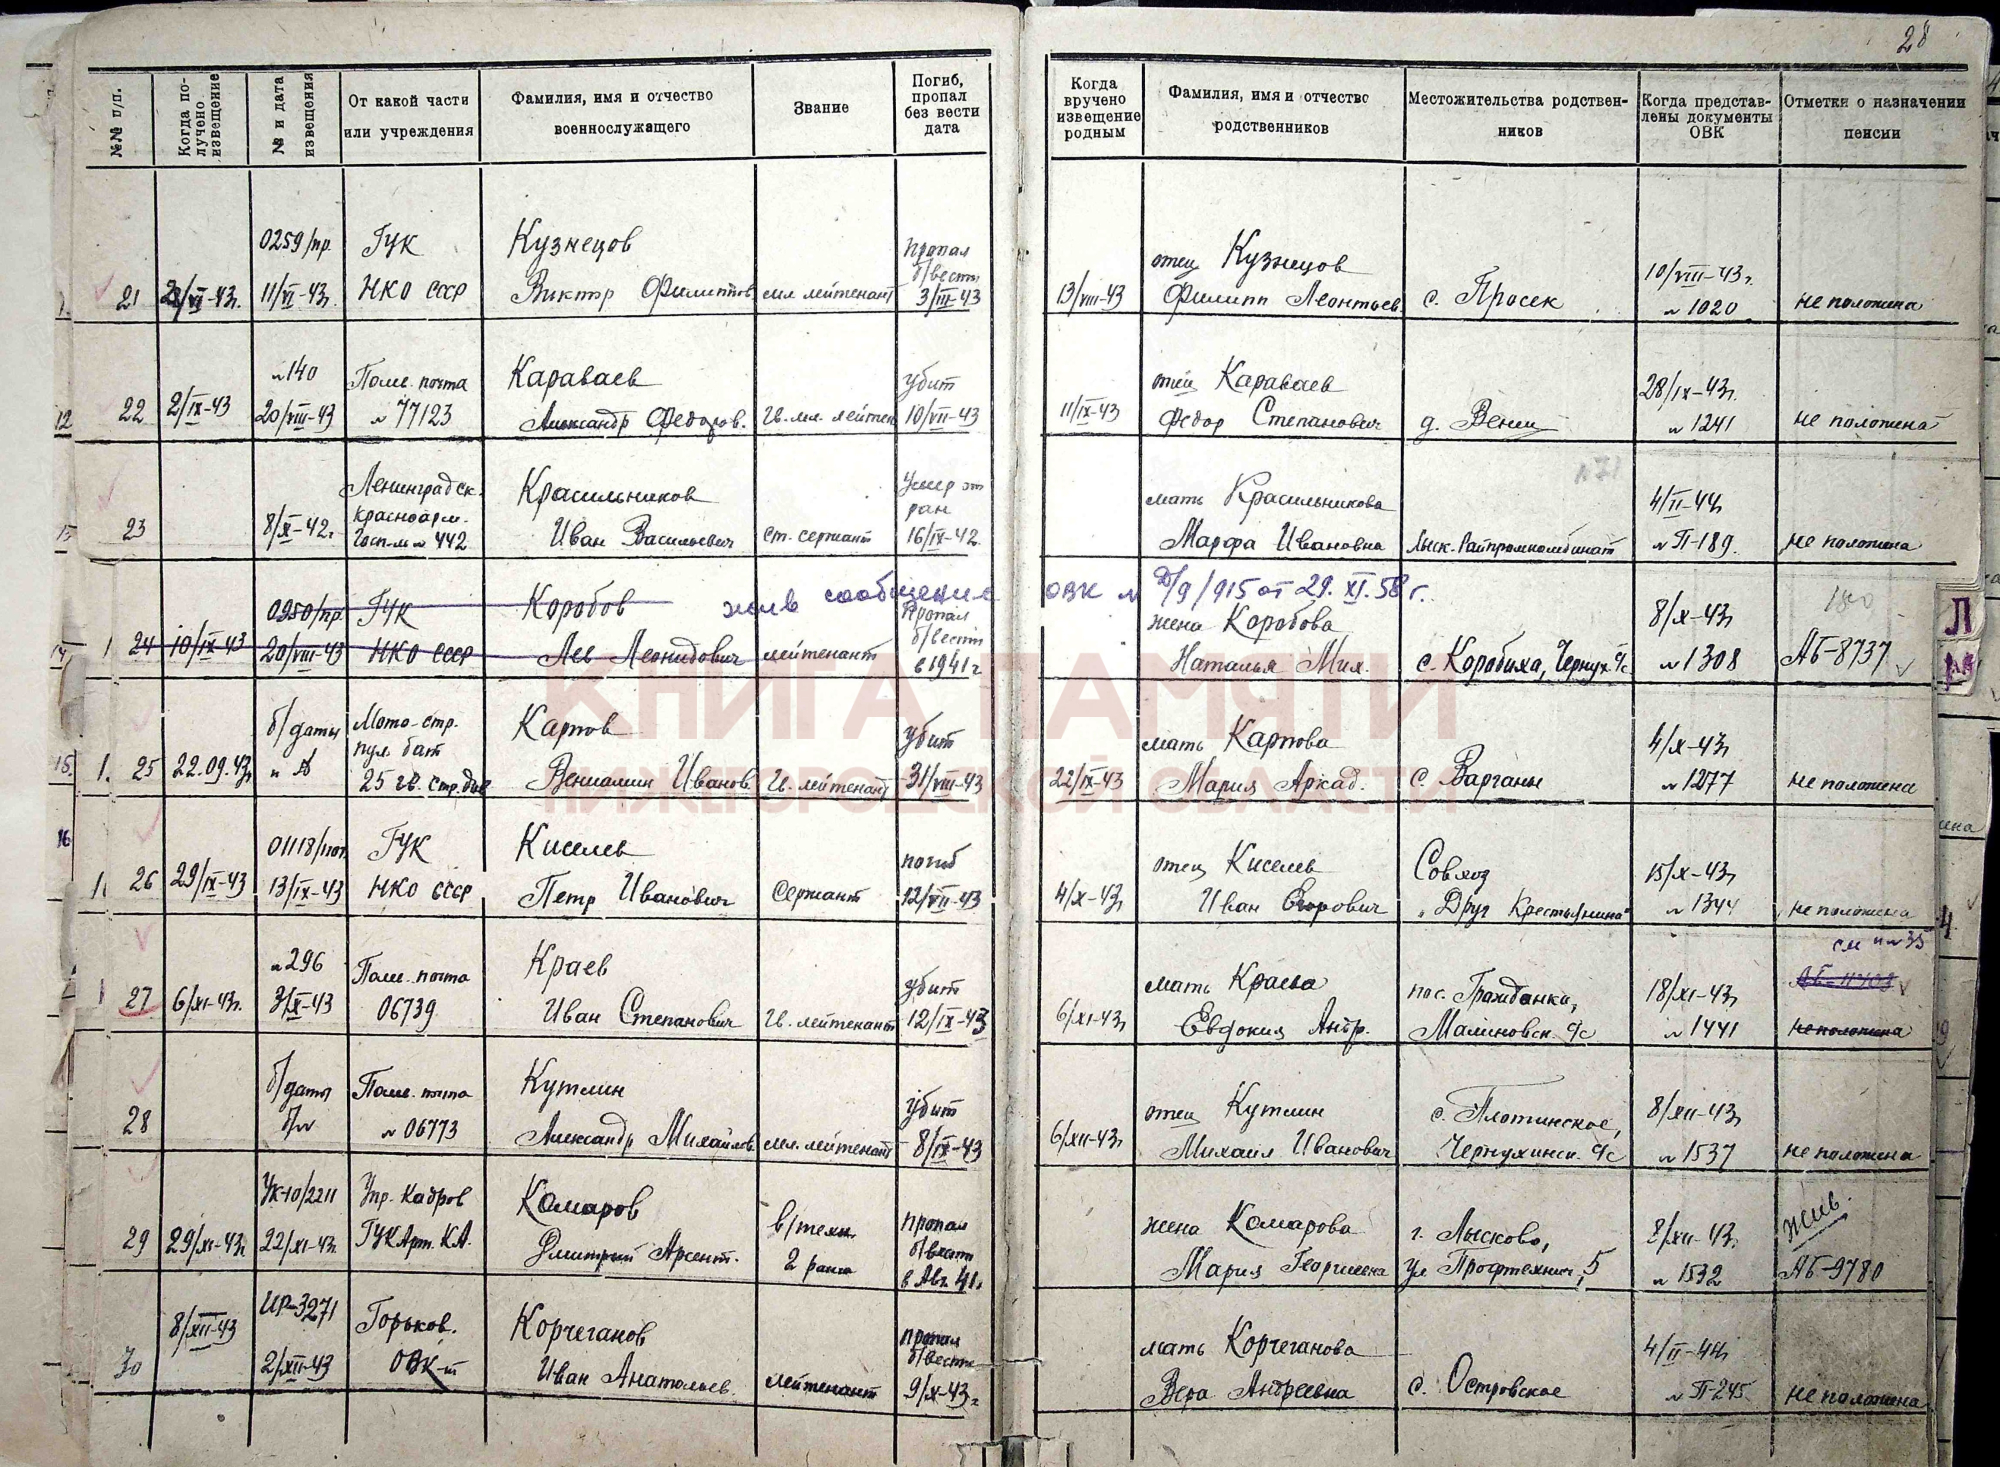 28
№№ п/п.
Когда по-
лучено
извещение
№ и дата
извещения
От какой части
или учреждения
Фамилия, имя и отчество
военнослужащего
Звание
Погиб,
пропал
без вести
дата
Когда
вручено
извещение
родным
Фамилия, имя и отчество
родственников
Местожительства родствен-
ников
Когда представ-
лены документы
ОВК
Отметки о назначении
пенсии
21
28/VI-43г.
0259/пр.
11/VI-43г.
ГУК
НКО СССР
Кузнецов
Виктор Филиппов.
мл лейтенант
пропал
б/вести
3/III-43
13/VIII-43
отец Кузнецов
Филипп Леонтьев.
с. Просек
10/VIII-43г.
№ 1020
не положена
22
2/IX-43
№140
20/VIII-43
Полев. почта
№ 77123
Караваев
Александр Федоров.
Гв. мл. лейтен
убит
10/VII-43
11/IX-43
отец Караваев
Федор Степанович
д. Венец
28/IX-43г.
№ 1241
не положена
23
8/X-42г
Ленинградск.
красноарм.
Госп-ль № 442
Красильников
Иван Васильевич
ст. сержант
Умер от
ран
16/IX-42
мать Красильникова
Марфа Ивановна
№71
Лыск. Райпромкомбинат
4/II-44г
№ П-189.
не положена
24
10/IX-43
0250/пр.
20/VIII-43
ГУК
НКО СССР
Коробов
Лев Леонидович
лейтенант
жив сообщение ОВК № 2/9/915 от 29. XI. 58 г.
Пропал
б/вести
в 1941г
жена Коробова
Наталья Мих.
с. Коробиха, Чернух. с/с
8/X-43г
№1308
180
АБ-8737
25
22.09.43г
б/даты
и №
Мото-стр.
пул бат
25 гв. стр. див
Карпов
Вениамин Иванов.
Гв. лейтенант
убит
31/VIII-43
22/IX-43
мать Карпова
Мария Аркад.
с. Варганы
4/X-43г
№ 1277
не положена
26
29/IX-43
01118/пот.
13/IX-43
ГУК
НКО СССР
Киселев
Петр Иванович
Сержант
погиб
12/VII-43
4/X-43г
отец Киселев
Иван Егорович
Совхоз
"Друг Крестьянина"
15/X-43г
№ 1344
не положена
27
6/XI-43г.
№296
3/X-43
Полев. почта
06739
Краев
Иван Степанович
Гв. лейтенант
убит
12/IX-43
6/XI-43г
мать Краева
Евдокия Андр.
пос. Гражданка,
Малиновск. с/с
18/XI-43г
№ 1441
см п№35
не положена
28
б/даты
б/№
Полев. почта
№ 06773
Кутлин
Александр Михайлов.
мл. лейтенант
убит
8/IX-43
6/XII-43г
отец Кутлин
Михаил Иванович
с. Плотинское,
Чернухинск. с/с
8/XII-43г
№ 1537
не положена
29
29/XI-43г
УК-10/2211
22/XI-43г
Упр. Кадров
ГУК Арт. КА.
Комаров
Дмитрий Арсент.
в/техн.
2 ранга
пропал
б/вести
в Авг. 41г
жена Комарова
Мария Георгиевна
г. Лысково,
ул Профтехнич, 5
8/XII-43г
№ 1532
жив.
АБ-9780
30
8/XII-43
ИР-3271
2/XII-43
Горьков.
ОВК-т
Корчеганов
Иван Анатольев.
лейтенант
пропал
б/вести
9/X-43г
мать Корчеганова
Вера Андреевна
с. Островское
4/II-44г
№ П-245
не положена
КНИГА ПАМЯТИ
НИЖЕГОРОДСКОЙ ОБЛАСТИ